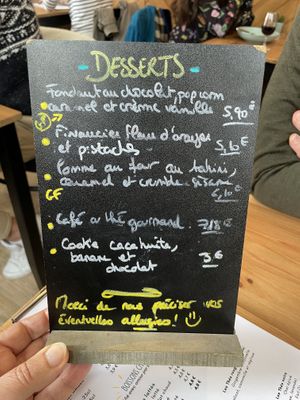 - DESSERTS -
Fondant au chocolat, pop corn
caramel et crème vanille 5,90€
GF →
Financier fleur d'oranger
et pistache 5,10€
Pomme au four au tahini,
caramel et crumble sésame
GF
Café ou thé gourmand 7/8€
Cookie cacahuète,
banane et
chocolat 3€
Merci de nous préciser vos
éventuelles allergies !